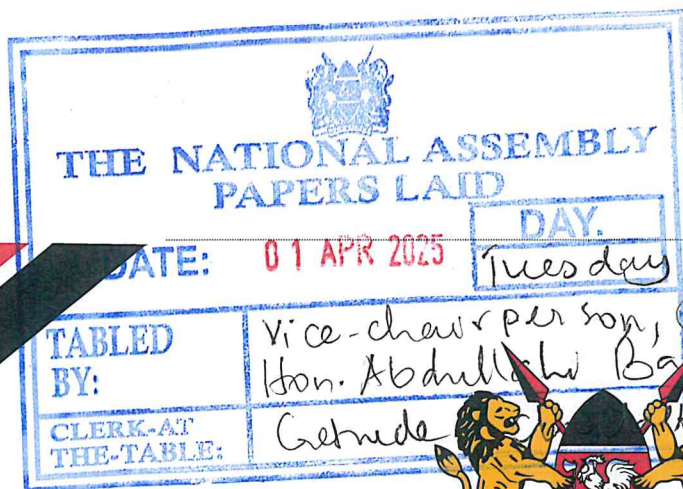 THE NATIONAL ASSEMBLY
PAPERS LAID
DATE: 01 APR 2025
DAY.
Tuesday
TABLED BY:
Vice-chairperson,
Hon. Abdullahi
CLERK-AT THE-TABLE: